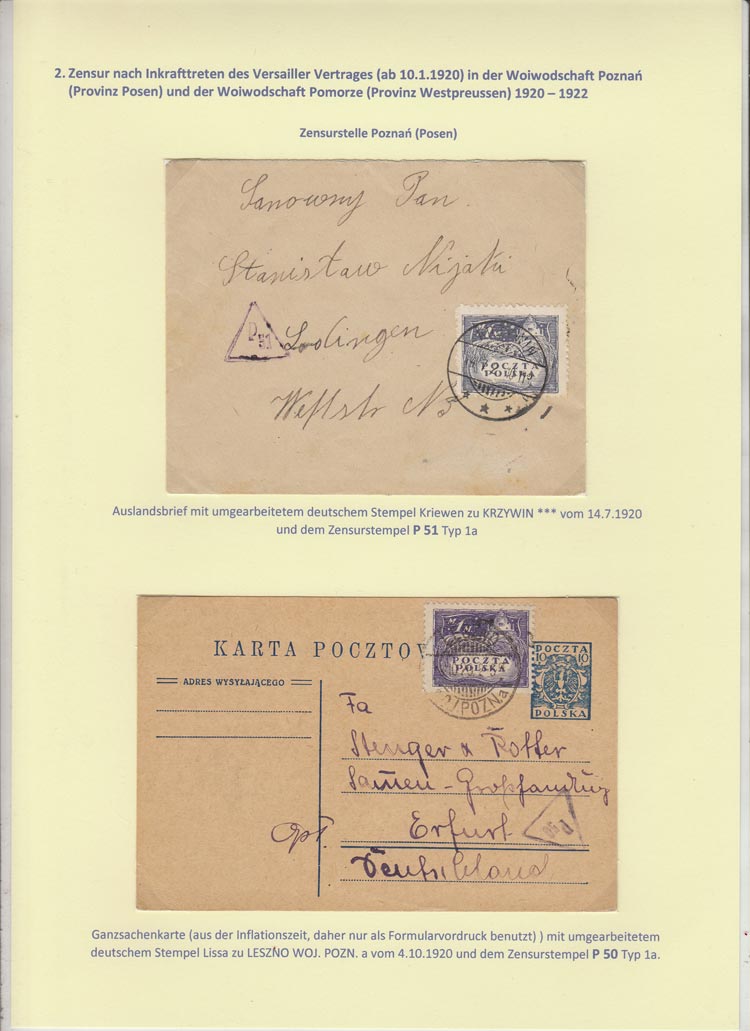 2. Zensur nach Inkrafttreten des Versailler Vertrages (ab 10.1.1920) in der Woiwodschaft Poznań
(Provinz Posen) und der Woiwodschaft Pomorze (Provinz Westpreussen) 1920 – 1922
Zensurstelle Poznań (Posen)
Sanowny Pan.
Stanisław Nijaki
P 51
Lodingen
POCZTA
POLSKA
Weststr N3
Auslandsbrief mit umgearbeitetem deutschem Stempel Kriewen zu KRZYWIN *** vom 14.7.1920
und dem Zensurstempel P 51 Typ 1a
KARTA POCZTOW
M 1 M
POCZTA
POLSKA
POCZTA
10 10
POLSKA
ADRES WYSYŁAJĄCEGO
Fa
Stenger & Rotter
Samen-Großhandlung
Erfurt
P 50
Deutschland
Ganzsachenkarte (aus der Inflationszeit, daher nur als Formularvordruck benutzt) ) mit umgearbeitetem
deutschem Stempel Lissa zu LESZNO WOJ. POZN. a vom 4.10.1920 und dem Zensurstempel P 50 Typ 1a.